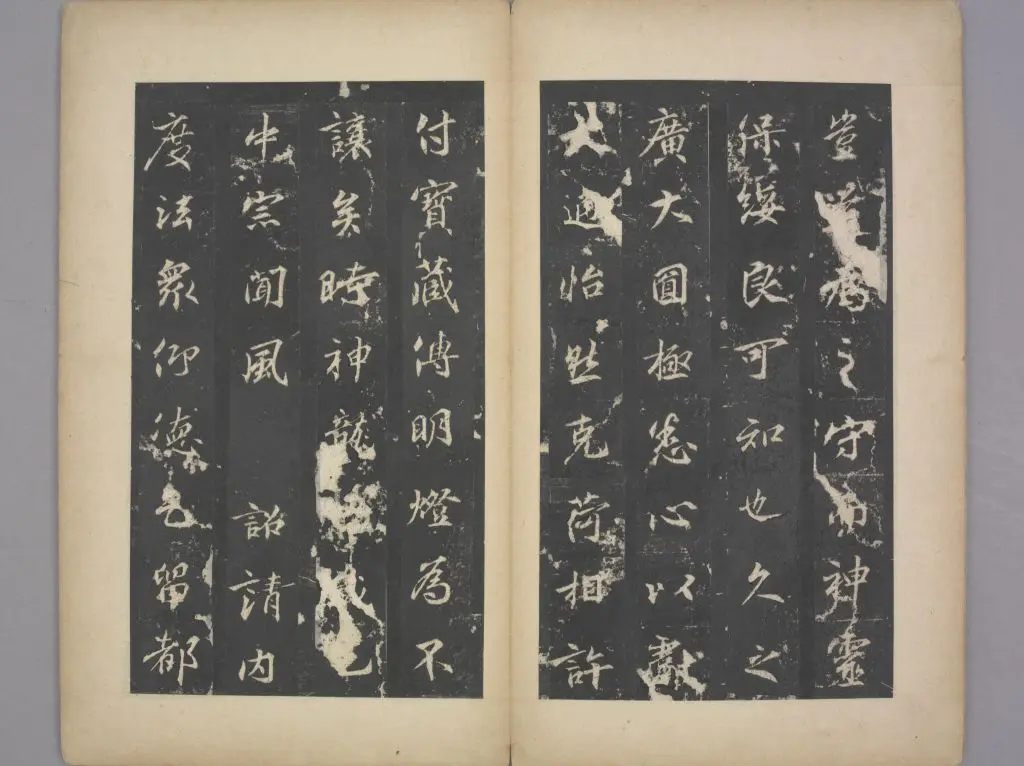 豈為之守而神靈
保綏良可知也久之
廣大圓極悉心以獻
大通怡然克荷相許
付寶藏傳明燈為不
讓矣時神龍
中宗聞風 詔請內
度法眾仰德乞留都